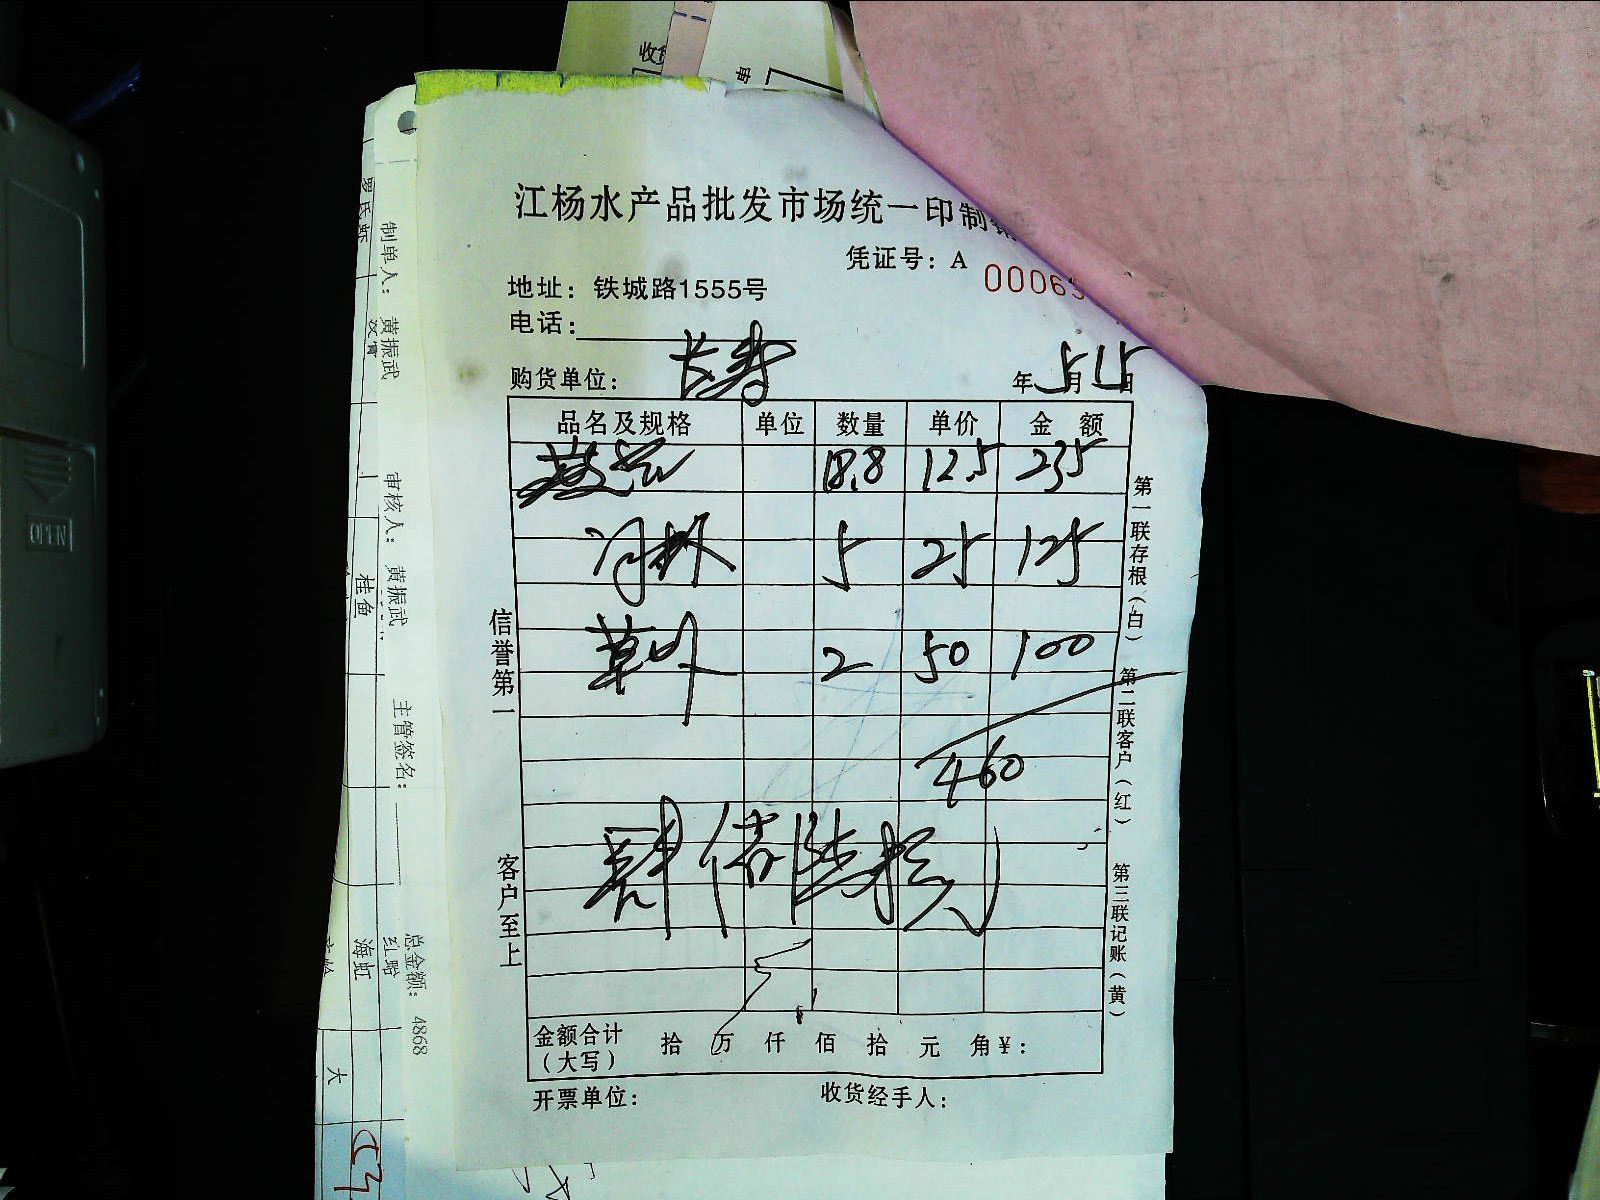 江杨水产品批发市场统一印制
凭证号：A 00065
地址：铁城路1555号
电话：
购货单位： 长寿 年 5月15日
品名及规格 单位 数量 单价 金 额
18.8 12.5 235
5 25 125
草虾 2 50 100
460
肆佰陆拾
金额合计（大写） 拾 万 仟 佰 拾 元 角￥：
开票单位： 收货经手人：
信誉第一 客户至上
第一联存根（白） 第二联客户（红） 第三联记账（黄）
制单人：黄振武 审核人：黄振武 主管签名： 总金额：4868
罗氏虾
桂鱼
海虹
大